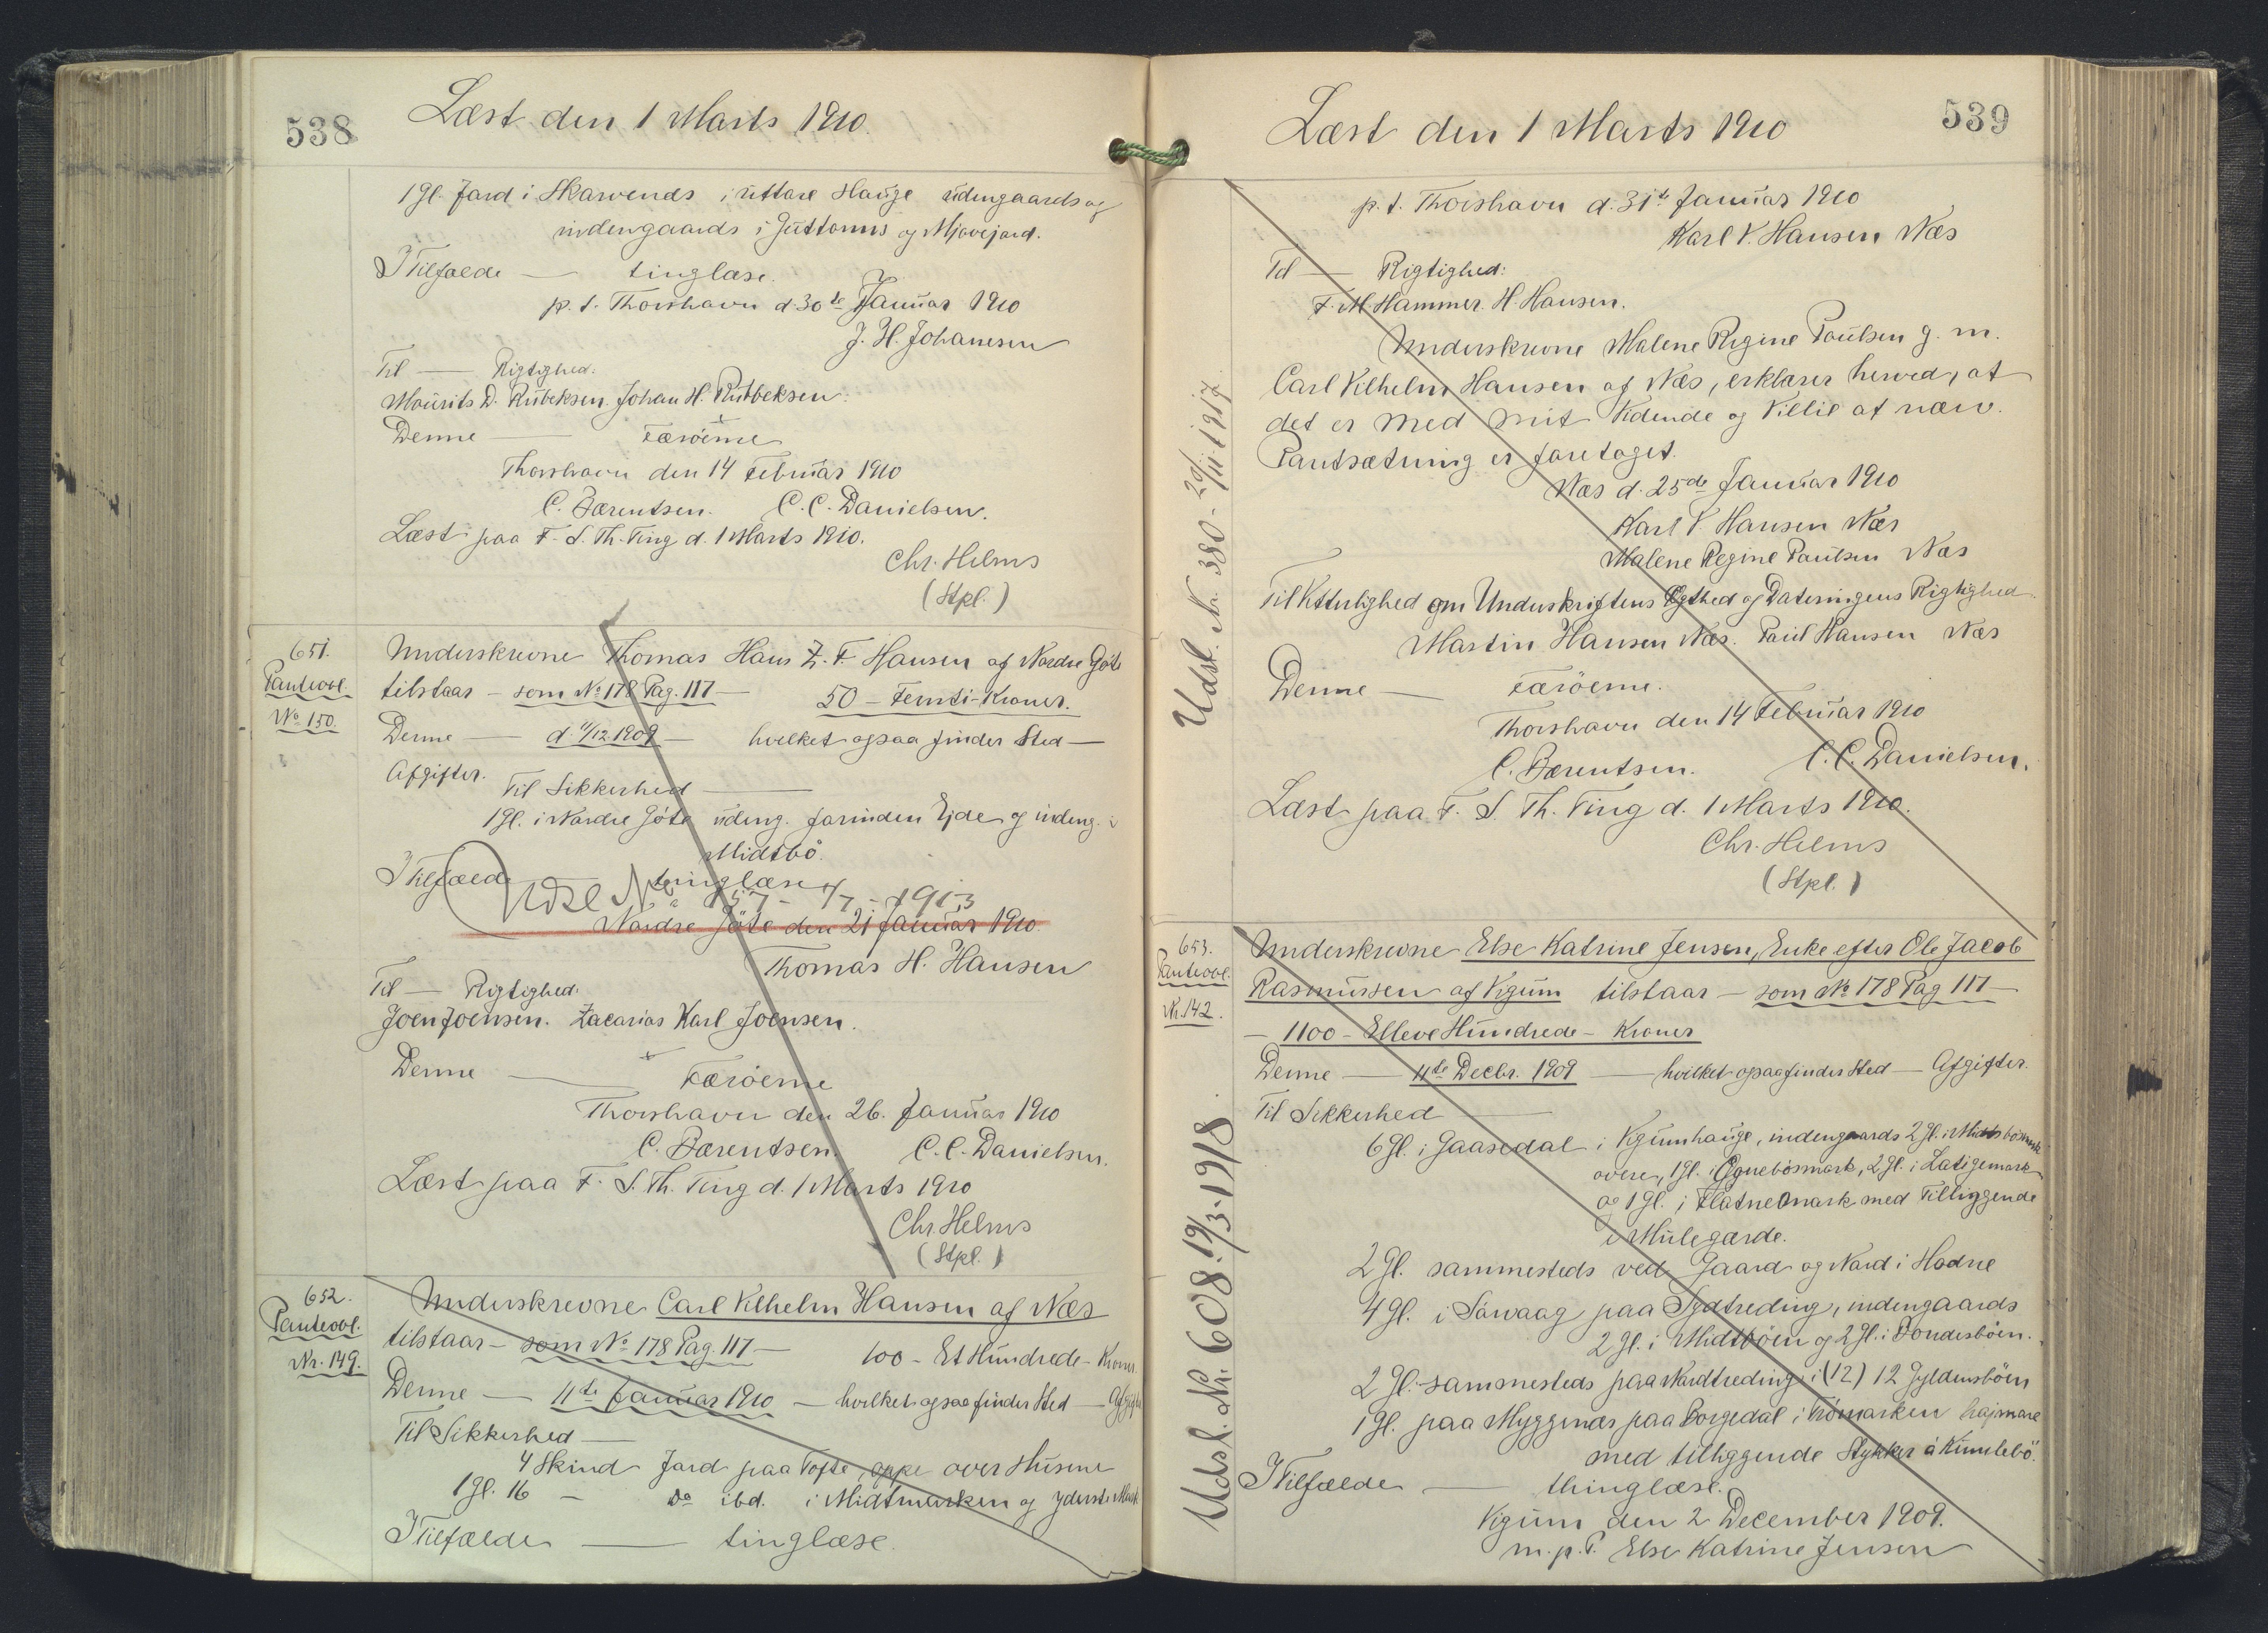 538
Læst den 1 Marts 1910.
1 Gl. Jord i Skarvends i uttare Hauge udengaards og
indengaards i Guttorms og Mjovejord.
I Tilfælde — tinglæse.
p. t. Thorshavn d. 30te Januar 1910
J. H. Johanesen
Til — Rigtighed.
Mourits D. Rubeksen. Johan H. Rubbeksen.
Denne — Færöerne
Thorshavn den 14 Februar 1910
C. Bærentsen. C. C. Danielsen.
Læst paa F. S. Th. Ting d. 1 Marts 1910.
Chr. Helms
(Stpl.)
651.
Panteobl.
No 150.
Underskrevne Thomas Hans Z. F. Hansen af Nordre Göte
tilstaar — som No 178 Pag. 117 — 50 – Femti – Kroner.
Denne — d 11/12 1909 — hvilket ogsaa finder Sted —
Afgifter.
Til Sikkerhed —
1 Gl. i Nordre Göte udeng. forinden Ejde og indeng. i
Midtbö.
I Tilfælde — tinglæse
Udsl No 157 - 4/7 - 1913
Nordre Göte den 21 Januar 1910.
Thomas H. Hansen
Til — Rigtighed.
Joen Joensen. Zacarias Karl Joensen.
Denne — Færöerne
Thorshavn den 26. Januar 1910
C. Bærentsen. C. C. Danielsen.
Læst paa F. S. Th. Ting d. 1 Marts 1910
Chr. Helms
(Stpl.)
652.
Panteobl.
Nr. 149.
Underskrevne Carl Vilhelm Hansen af Næs
tilstaar — som No 178 Pag. 117 — 100 – Et Hundrede – Kroner.
Denne — 11te Januar 1910 — hvilket ogsaa finder Sted — Afgifter
Til Sikkerhed —
4 Skind Jord paa Tofte, oppe over Husene
1 Gl. 16 — Do ibd. i Midtmarken og yderste Mark
I Tilfælde — tinglæse.
539
Læst den 1 Marts 1910
p. t. Thorshavn d. 31te Januar 1910
Karl V. Hansen Næs
Til — Rigtighed:
F. M. Hammer. H. Hansen.
Underskrevne Malene Regine Poulsen g. m.
Carl Vilhelm Hansen af Næs, erklærer herved, at
det er med mit Vidende og Villie at nærv.
Pantsætning er foretaget.
Næs d. 25de Januar 1910
Karl V. Hansen Næs
Malene Regine Paulsen Næs
Til Vitterlighed om Underskriftens Ægthed og Dateringens Rigtighed.
Martin Hansen Næs. Paul Hansen Næs
Denne — Færöerne.
Thorshavn den 14 Februar 1910
C. Bærentsen. C. C. Danielsen.
Læst paa F. S. Th. Ting d. 1 Marts 1910.
Chr. Helms
(Stpl.)
Udsl. Nr. 380 - 20/11 1917.
653.
Panteobl.
Nr. 142.
Underskrevne Else Katrine Jensen, Enke efter Ole Jacob
Rasmussen af Vigum tilstaar — som No 178 Pag 117 —
— 1100 – Elleve Hundrede – Kroner
Denne — 11te Decbr. 1909 — hvilket ogsaa finder Sted — Afgifter.
Til Sikkerhed —
6 Gl. i Gaasedal i Vigumhauge, indengaards 2 Gl. i Midtbösmark
overe, 1 Gl. i Ognebösmark, 2 Gl. i Latigemark
og 1 Gl. i Flatnemark med Tilliggende
i Mulegærde.
2 Gl. sammesteds ved Gaard og Nard i Hodne
4 Gl. i Sörvaag paa Sydtreding, indengaards
2 Gl. i Midtböen og 2 Gl. i Bondesböen.
2 Gl. sammesteds paa Nordtreding i (12) 12 Gyldensböen
1 Gl. paa Myggenæs paa Borgedal i Trömarken hajmare
med tilliggende Stykker á Kumlebö.
I Tilfælde — thinglæse.
Vigum den 2 December 1909.
m. p. P. Else Katrine Jensen
Udsl. Nr. 608. 19/3. 1918.